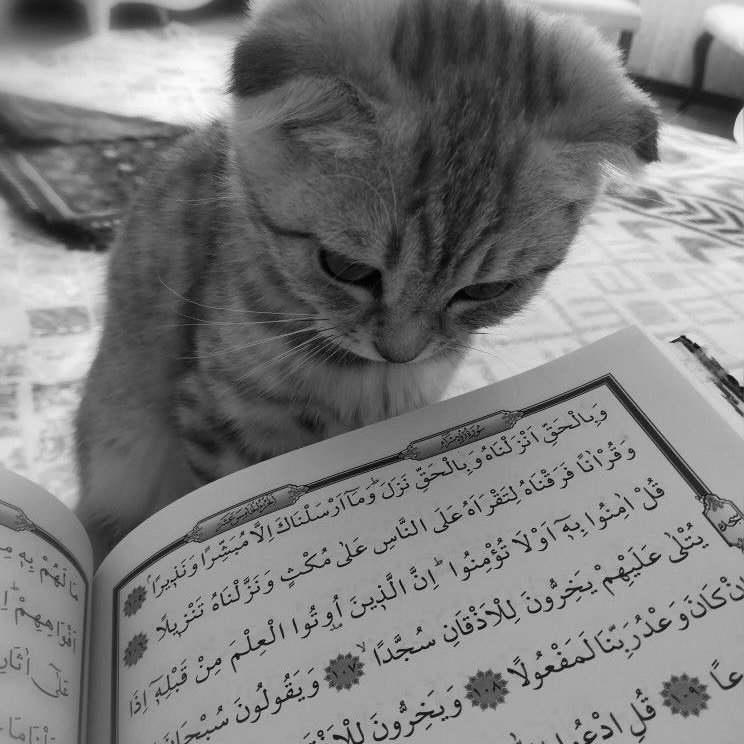 سُورَةُ الْاِسْرَاءِ
وَبِالْحَقِّ اَنْزَلْنَاهُ وَبِالْحَقِّ نَزَلَۜ وَمَٓا اَرْسَلْنَاكَ اِلَّا مُبَشِّرًا وَنَذ۪يرًاۢ ١٠٥
وَقُرْاٰنًا فَرَقْنَاهُ لِتَقْرَاَهُ عَلَى النَّاسِ عَلٰى مُكْثٍ وَنَزَّلْنَاهُ تَنْز۪يلًا ١٠٦
قُلْ اٰمِنُوا بِه۪ٓ اَوْ لَا تُؤْمِنُواۜ اِنَّ الَّذ۪ينَ اُو۫تُوا الْعِلْمَ مِنْ قَبْلِه۪ٓ اِذَا
يُتْلٰى عَلَيْهِمْ يَخِرُّونَ لِلْاَذْقَانِ سُجَّدًاۙ ١٠٧ وَيَقُولُونَ سُبْحَانَ
اِنْ كَانَ وَعْدُ رَبِّنَا لَمَفْعُولًا ١٠٨ وَيَخِرُّونَ لِلْاَذْقَانِ
١٠٩ قُلِ ادْعُوا
مَالَهُمْ بِه۪ مِنْ
اَفْوَاهِهِمْۜ اِنْ
عَلٰٓى اٰثَارِهِمْ